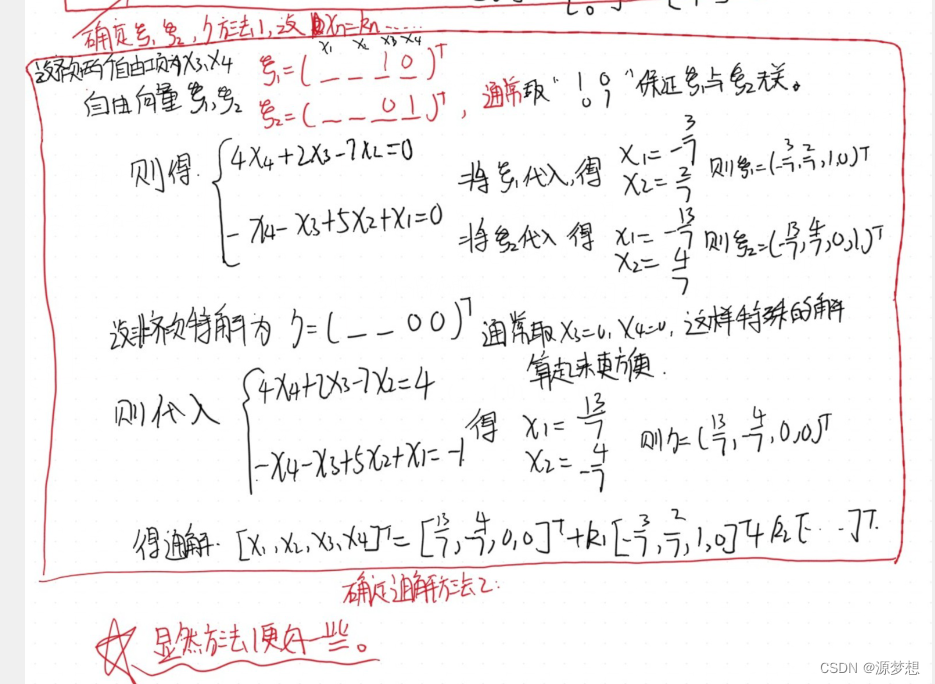 确定ξ₁ ξ₂, η方法1,设 xₙ=kₙ ……
x₁ x₂ x₃ x₄
设齐次两个自由项为x₃,x₄ ξ₁=(_ _ 1 0)ᵀ
自由向量ξ₁,ξ₂ ξ₂=(_ _ 0 1)ᵀ, 通常取 "1 0 0 1" 保证ξ₁与ξ₂无关。
则得. { 4x₄+2x₃-7x₂=0
-x₄-x₃+5x₂+x₁=0
⇒将ξ₁代入,得 x₁=-3/7 x₂=2/7 则ξ₁=(-3/7,2/7,1,0)ᵀ
⇒将ξ₂代入 得 x₁=-13/7 x₂=4/7 则ξ₂=(-13/7,4/7,0,1)ᵀ
设非齐次特解为 η=(_ _ 0 0)ᵀ 通常取x₃=0,x₄=0,这样特殊的解
算起来更方便.
则代入 { 4x₄+2x₃-7x₂=4
-x₄-x₃+5x₂+x₁=-1
得 x₁=13/7 x₂=-4/7 则η=(13/7,-4/7,0,0)ᵀ
得通解. [x₁,x₂,x₃,x₄]ᵀ=[13/7,-4/7,0,0]ᵀ+k₁[-3/7,2/7,1,0]ᵀ+k₂[…]ᵀ.
确定通解方法2:
☆ 显然方法1更好一些。
CSDN @源梦想